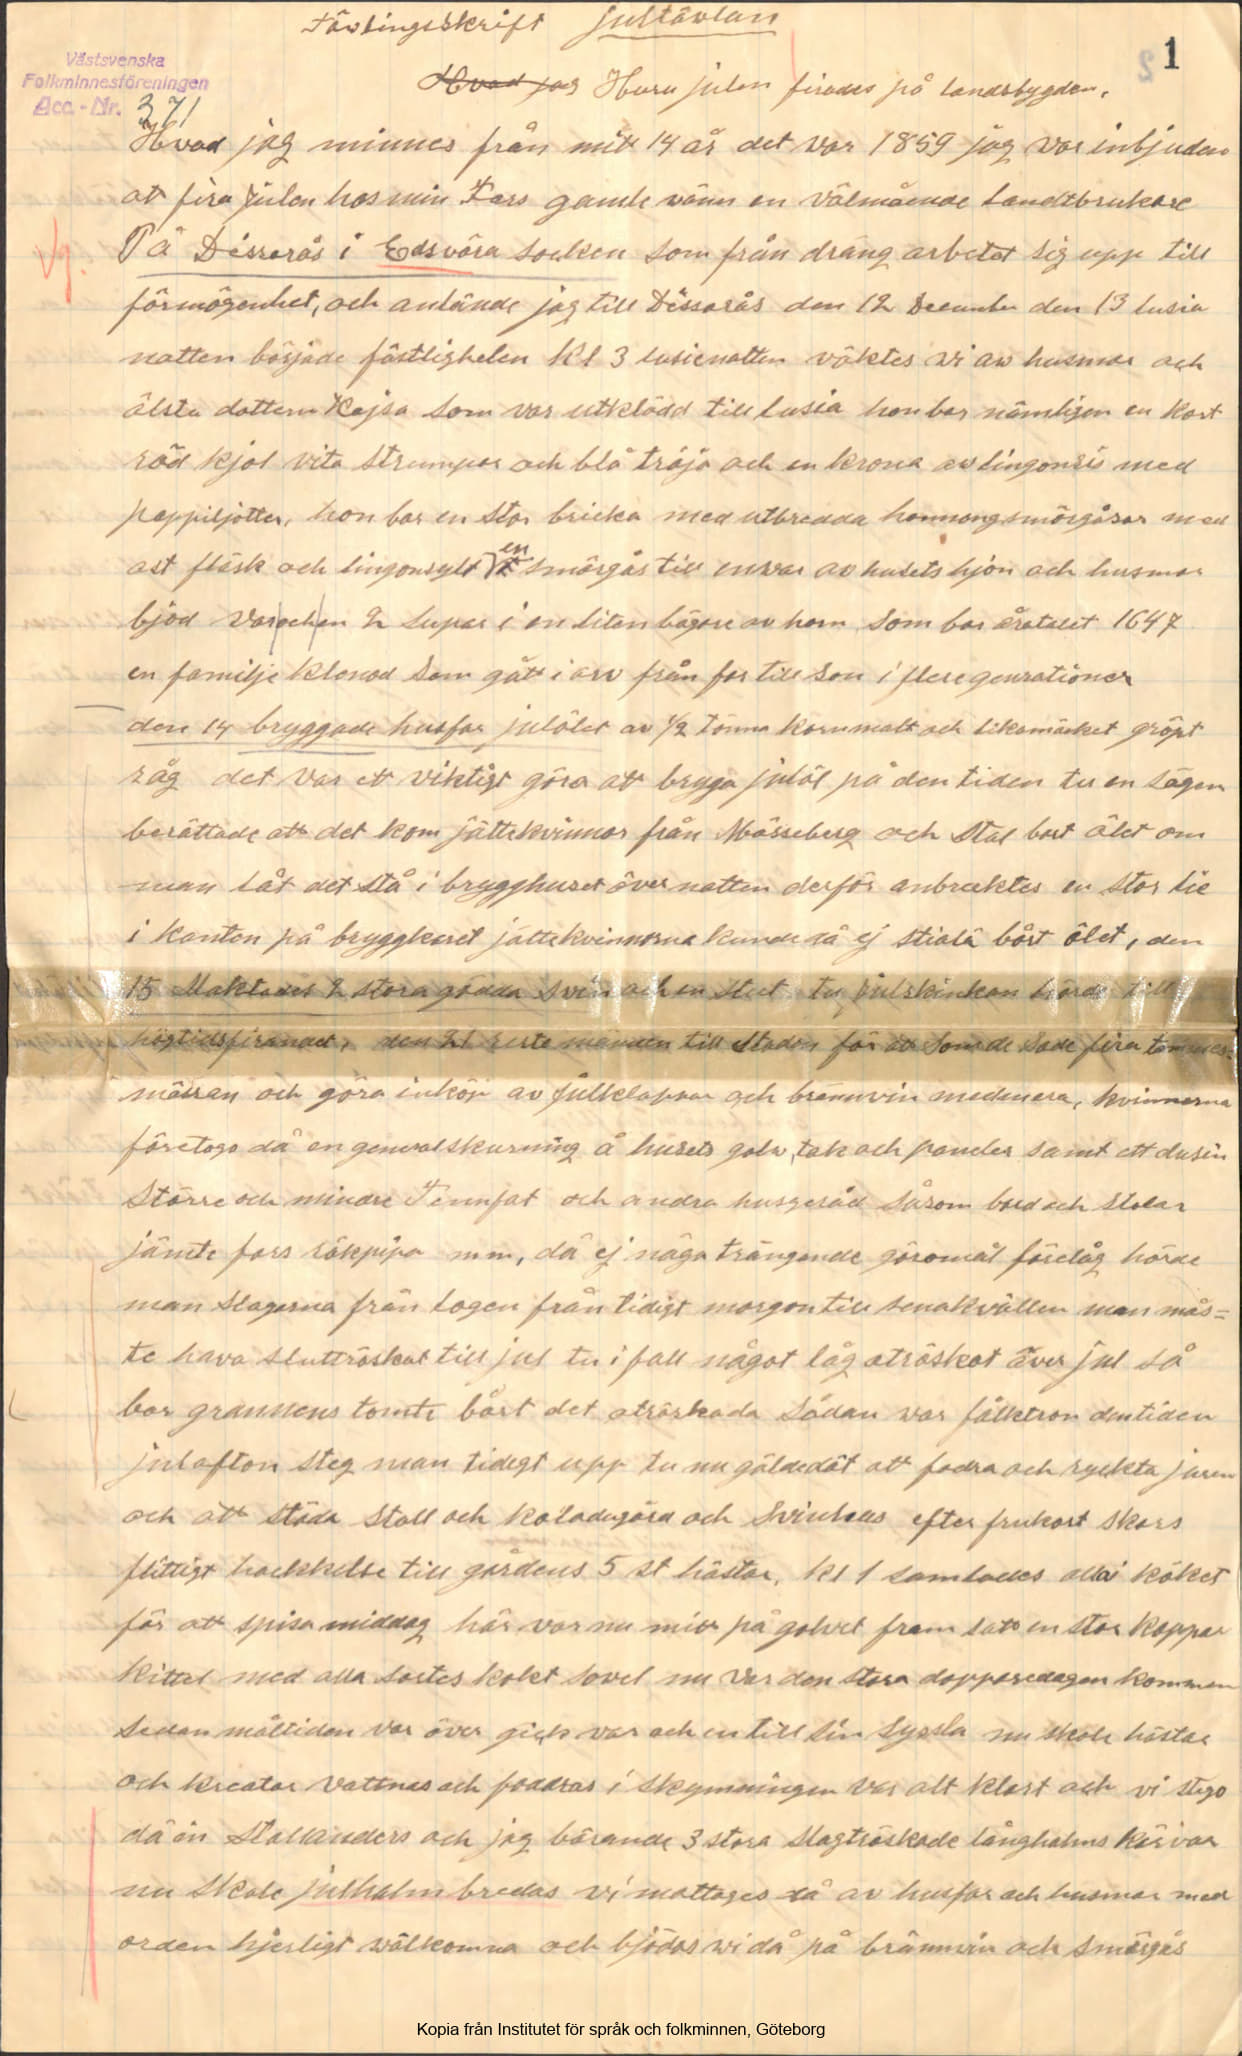 Tävlingsskrift jultävlan
1
2
Västsvenska
Folkminnesföreningen
Acc.-Nr. 371
Hvad jag Huru julen firades på landsbygden.
Hvad jag minnes från mitt 14 år det var 1859 jag var inbjuden
att fira julen hos min Fars gamle vänn en välmående Landtbrukare
Vg.
På Dässerås i Edsvära socken som från dräng arbetat sig upp till
förmögenhet, och anlände jag till Dässerås den 12 December den 13 lusia
natten började fästligheten kl 3 lusienatten väktes vi av husmor och
älsta dottern Kajsa som var utklädd till Lusia hon bar nämligen en kort
röd kjol vita strumpor och blå tröja och en krona av lingonris med
pappiljotter, hon bar en stor bricka med utbredda honnongsmörgåsar med
ost fläsk och lingonsylt en smörgås till envar av husets hjon och husmor
bjöd varochen 2 supar i en liten bägare av horn som bar åratalet 1647
en familje klenod som gått i arv från far till son i flere generationer
den 14 bryggade husfar julölet av 1/2 tönna kornmalt och likamäcket gröpt
råg det var ett viktigt göra att brygga julöl på den tiden tu en sägen
berättade att det kom jättekvinnor från Mösseberg och stal bort ölet om
man låt det stå i brygghuset över natten derför anbraktes en stor lie
i kanten på bryggkaret jättekvinnorna kunde då ej stiala bårt ölet, den
15 slaktades 2 stora gödda svin och en stut tu julskinkan hörde till
högtidsfirandet, den 21 reste männen till staden för att som de sade fira tommes-
mässan och göra inköp av julklappar och brännvin medmera, kvinnorna
företogo då en generalskurning å husets golv, tak och paneler samt ett dusin
större och mindre Tennfat och andra husgeråd såsom bord och stolar
jämte fars rökpipa mm, då ej någa trängande göromål förelåg hörde
man slagorna från logen från tidigt morgon till senakvällen man mås=
te hava sluttröskat till jul tu i fall något låg otröskat över jul så
bar grannens tomte bårt det otröskada sådan var fålktron dentiden
julafton steg man tidigt upp tu nu gäldedät att fodra och ryckta juren
och att städa stall och koladugård och svinhus efter frukost skars
flittigt hackkelse till gårdens 5 st hästar, kl 1 samlades alla i köket
för att spisa middag här var nu mitt på golvet fram satt en stor koppar
kittel med alla sorters kokt sovel nu var den stora dopparedagen kommen
sedan måltiden var över gick var och en till sin syssla nu skole hästar
och kreatur vattnas och foddras i skymningen var alt klart och vi stego
då in Stallanders och jag bärande 3 stora slagtröskade långhalms kärvar
nu skole julhalm bredas vi mottoges då av husfar och husmor med
orden hjerligt välkomna och bjödos wi då på brännvin och smörgås
Kopia från Institutet för språk och folkminnen, Göteborg